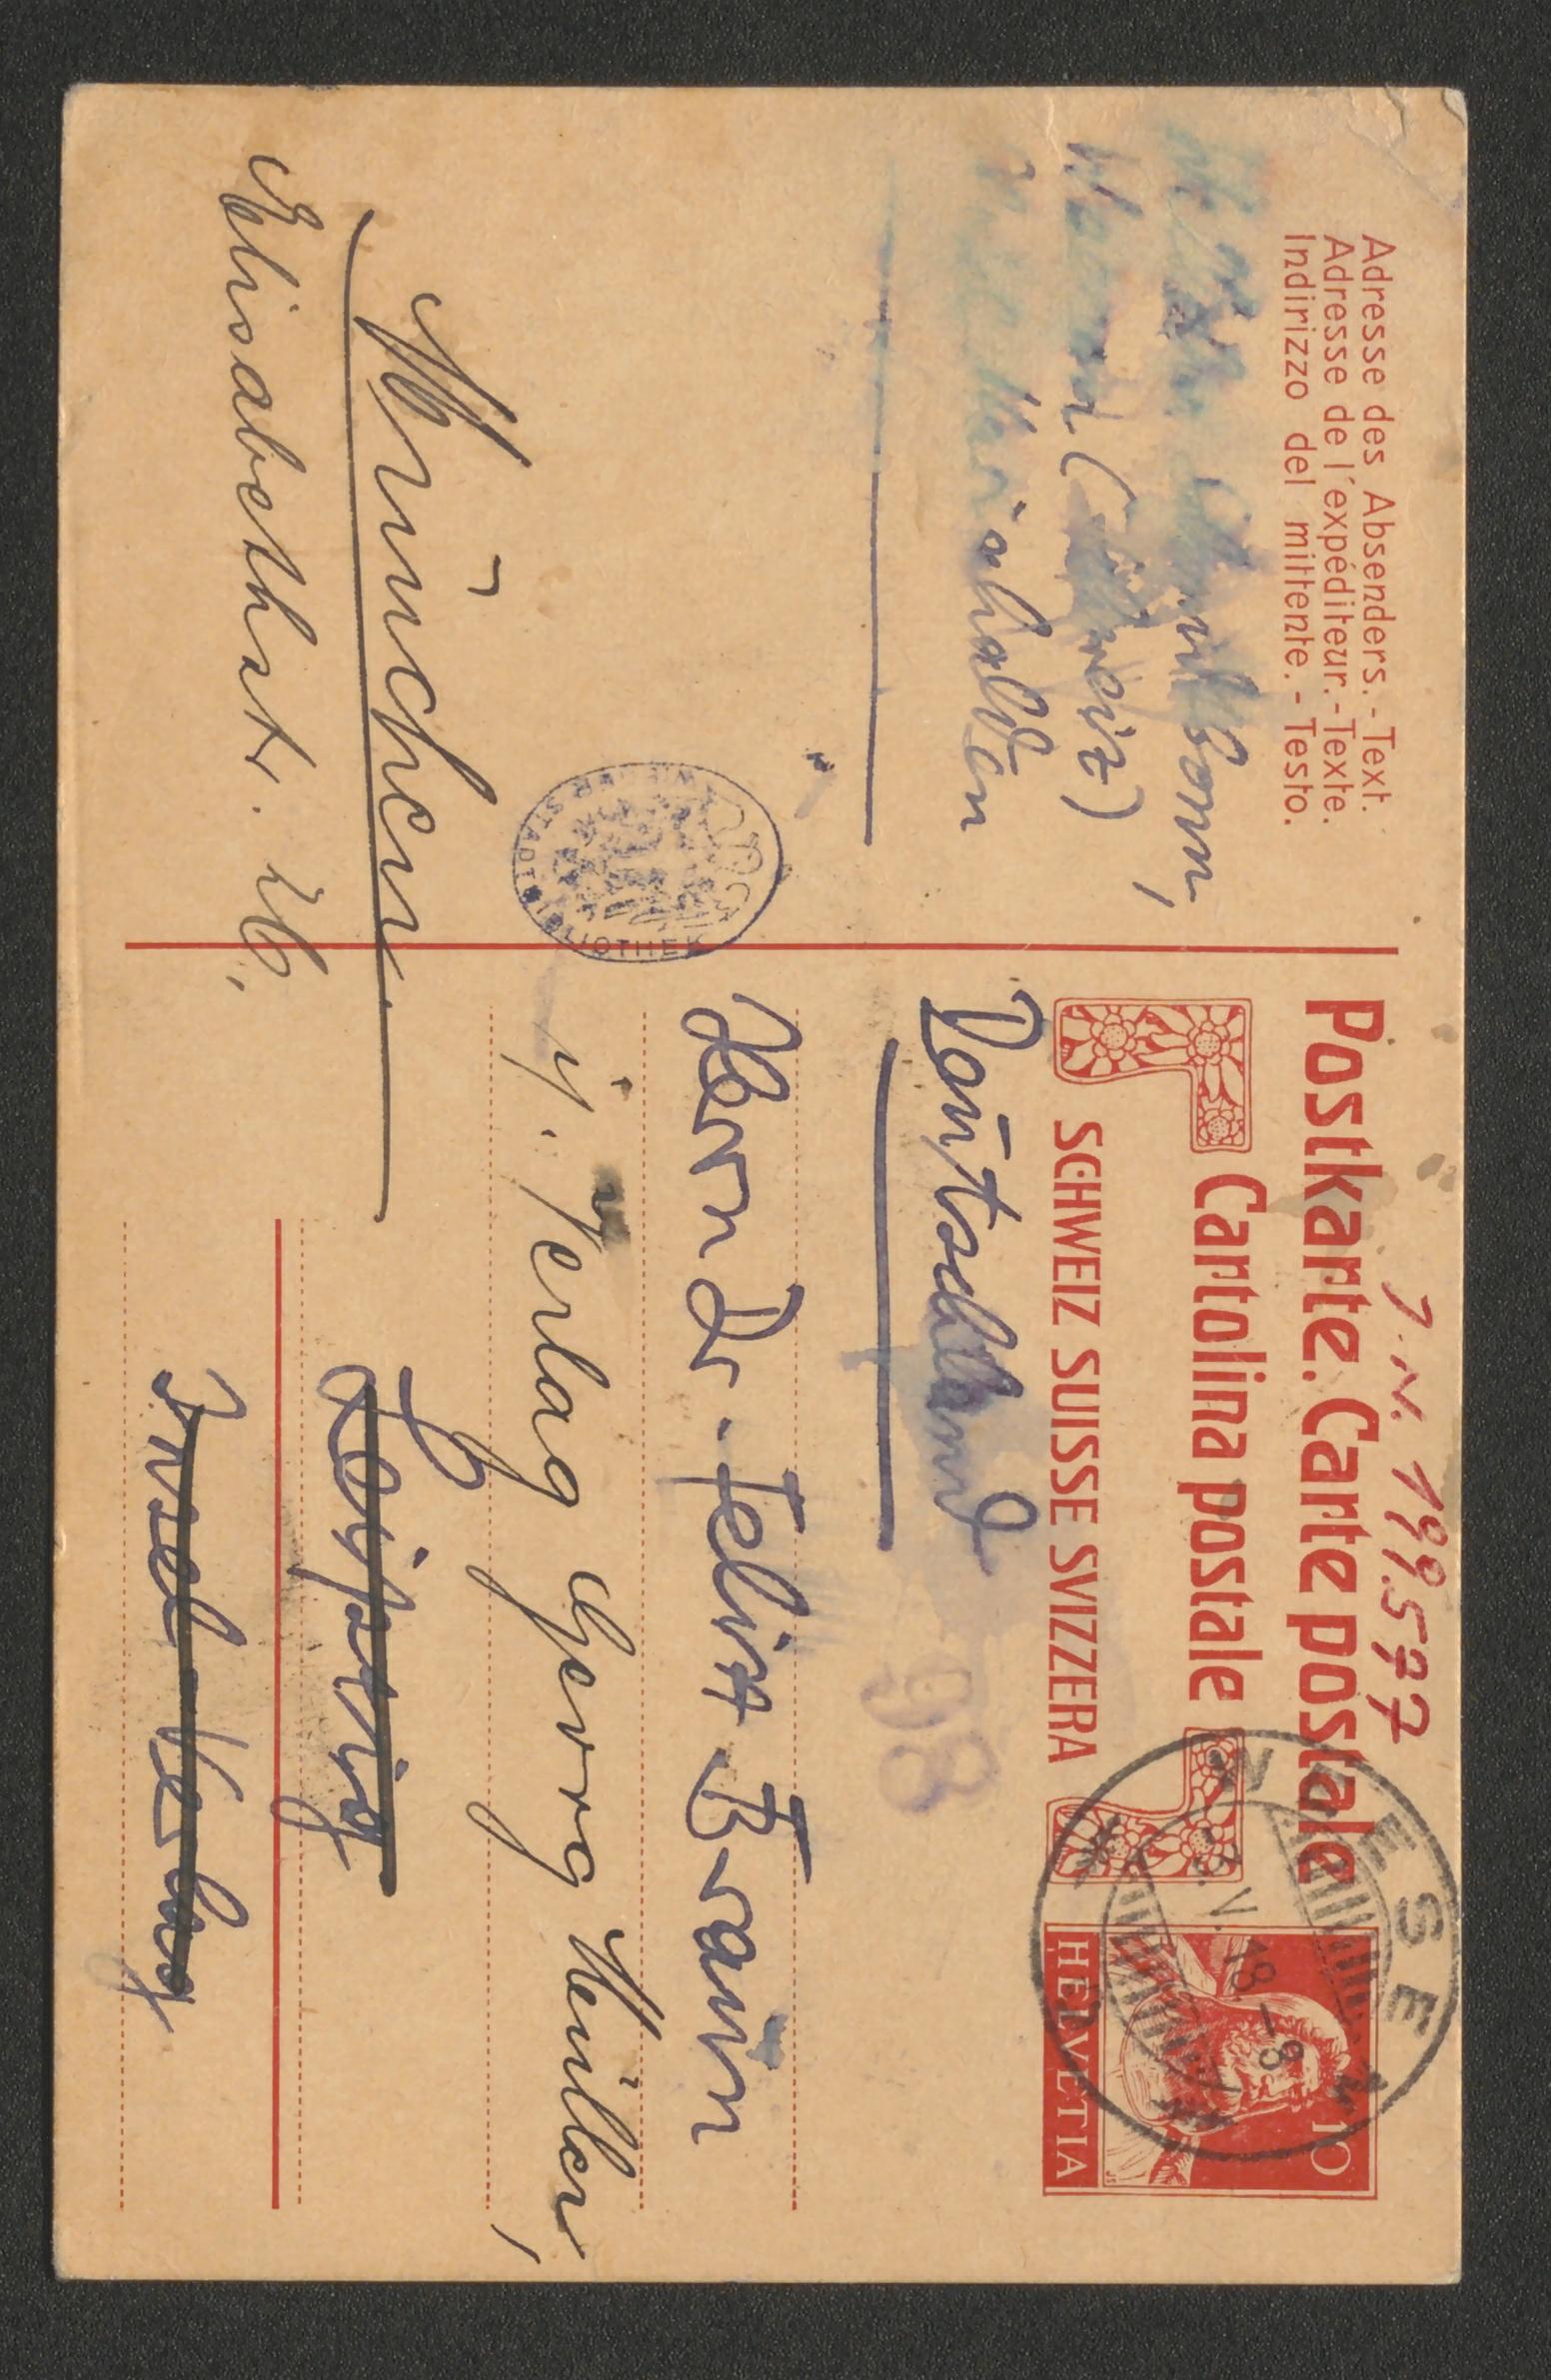 J.N. 199.577
Postkarte. Carte postale
Cartolina postale
SCHWEIZ SUISSE SVIZZERA
Adresse des Absenders. - Text.
Adresse de l'expéditeur. - Texte.
Indirizzo del mittente. - Testo.
(Schweiz)
Mariahalden
HELVETIA
10
V. 18 - 8
Deutschland
98
Herrn Dr. Felix Braun
Verlag Georg Müller,
Leipzig
Insel-Verlag
München
Elisabethstr. 26.
STADTBIBLIOTHEK